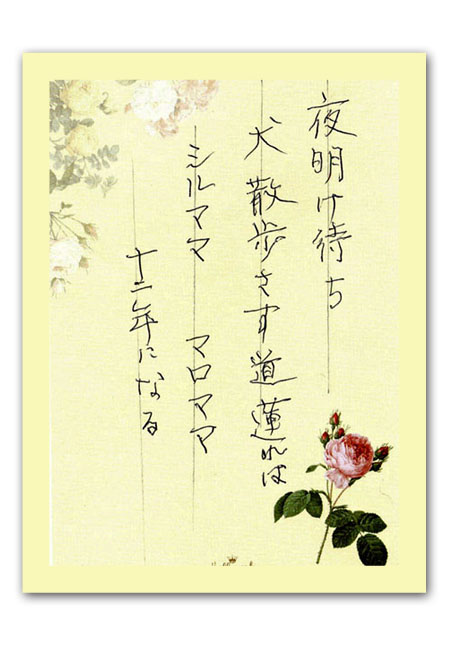 夜明け待ち
犬散歩さす道蓮れは
ミルママ マロママ
十二年になる